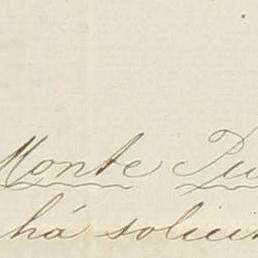 Monte Pu
há solicit